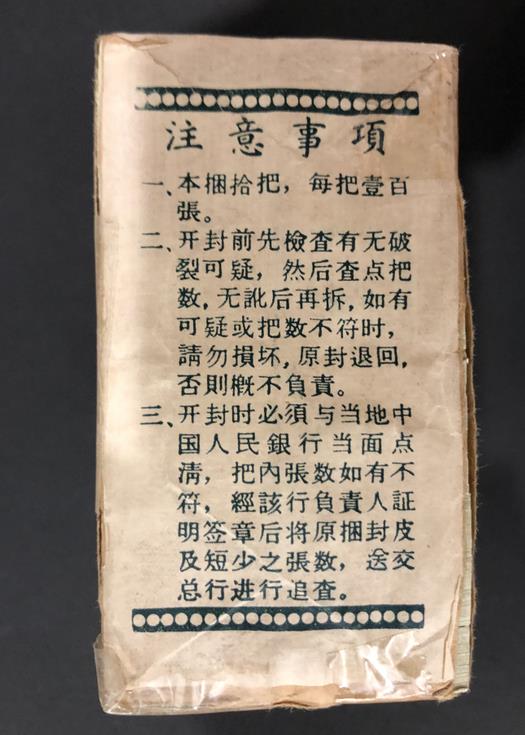 注意事項
一、本捆拾把，每把壹百
張。
二、开封前先檢查有无破
裂可疑，然后查点把
数，无訛后再拆，如有
可疑或把数不符时，
請勿損坏，原封退回，
否則概不負責。
三、开封时必須与当地中
国人民銀行当面点
淸，把內張数如有不
符，經該行負責人証
明签章后将原捆封皮
及短少之張数，送交
总行进行追查。